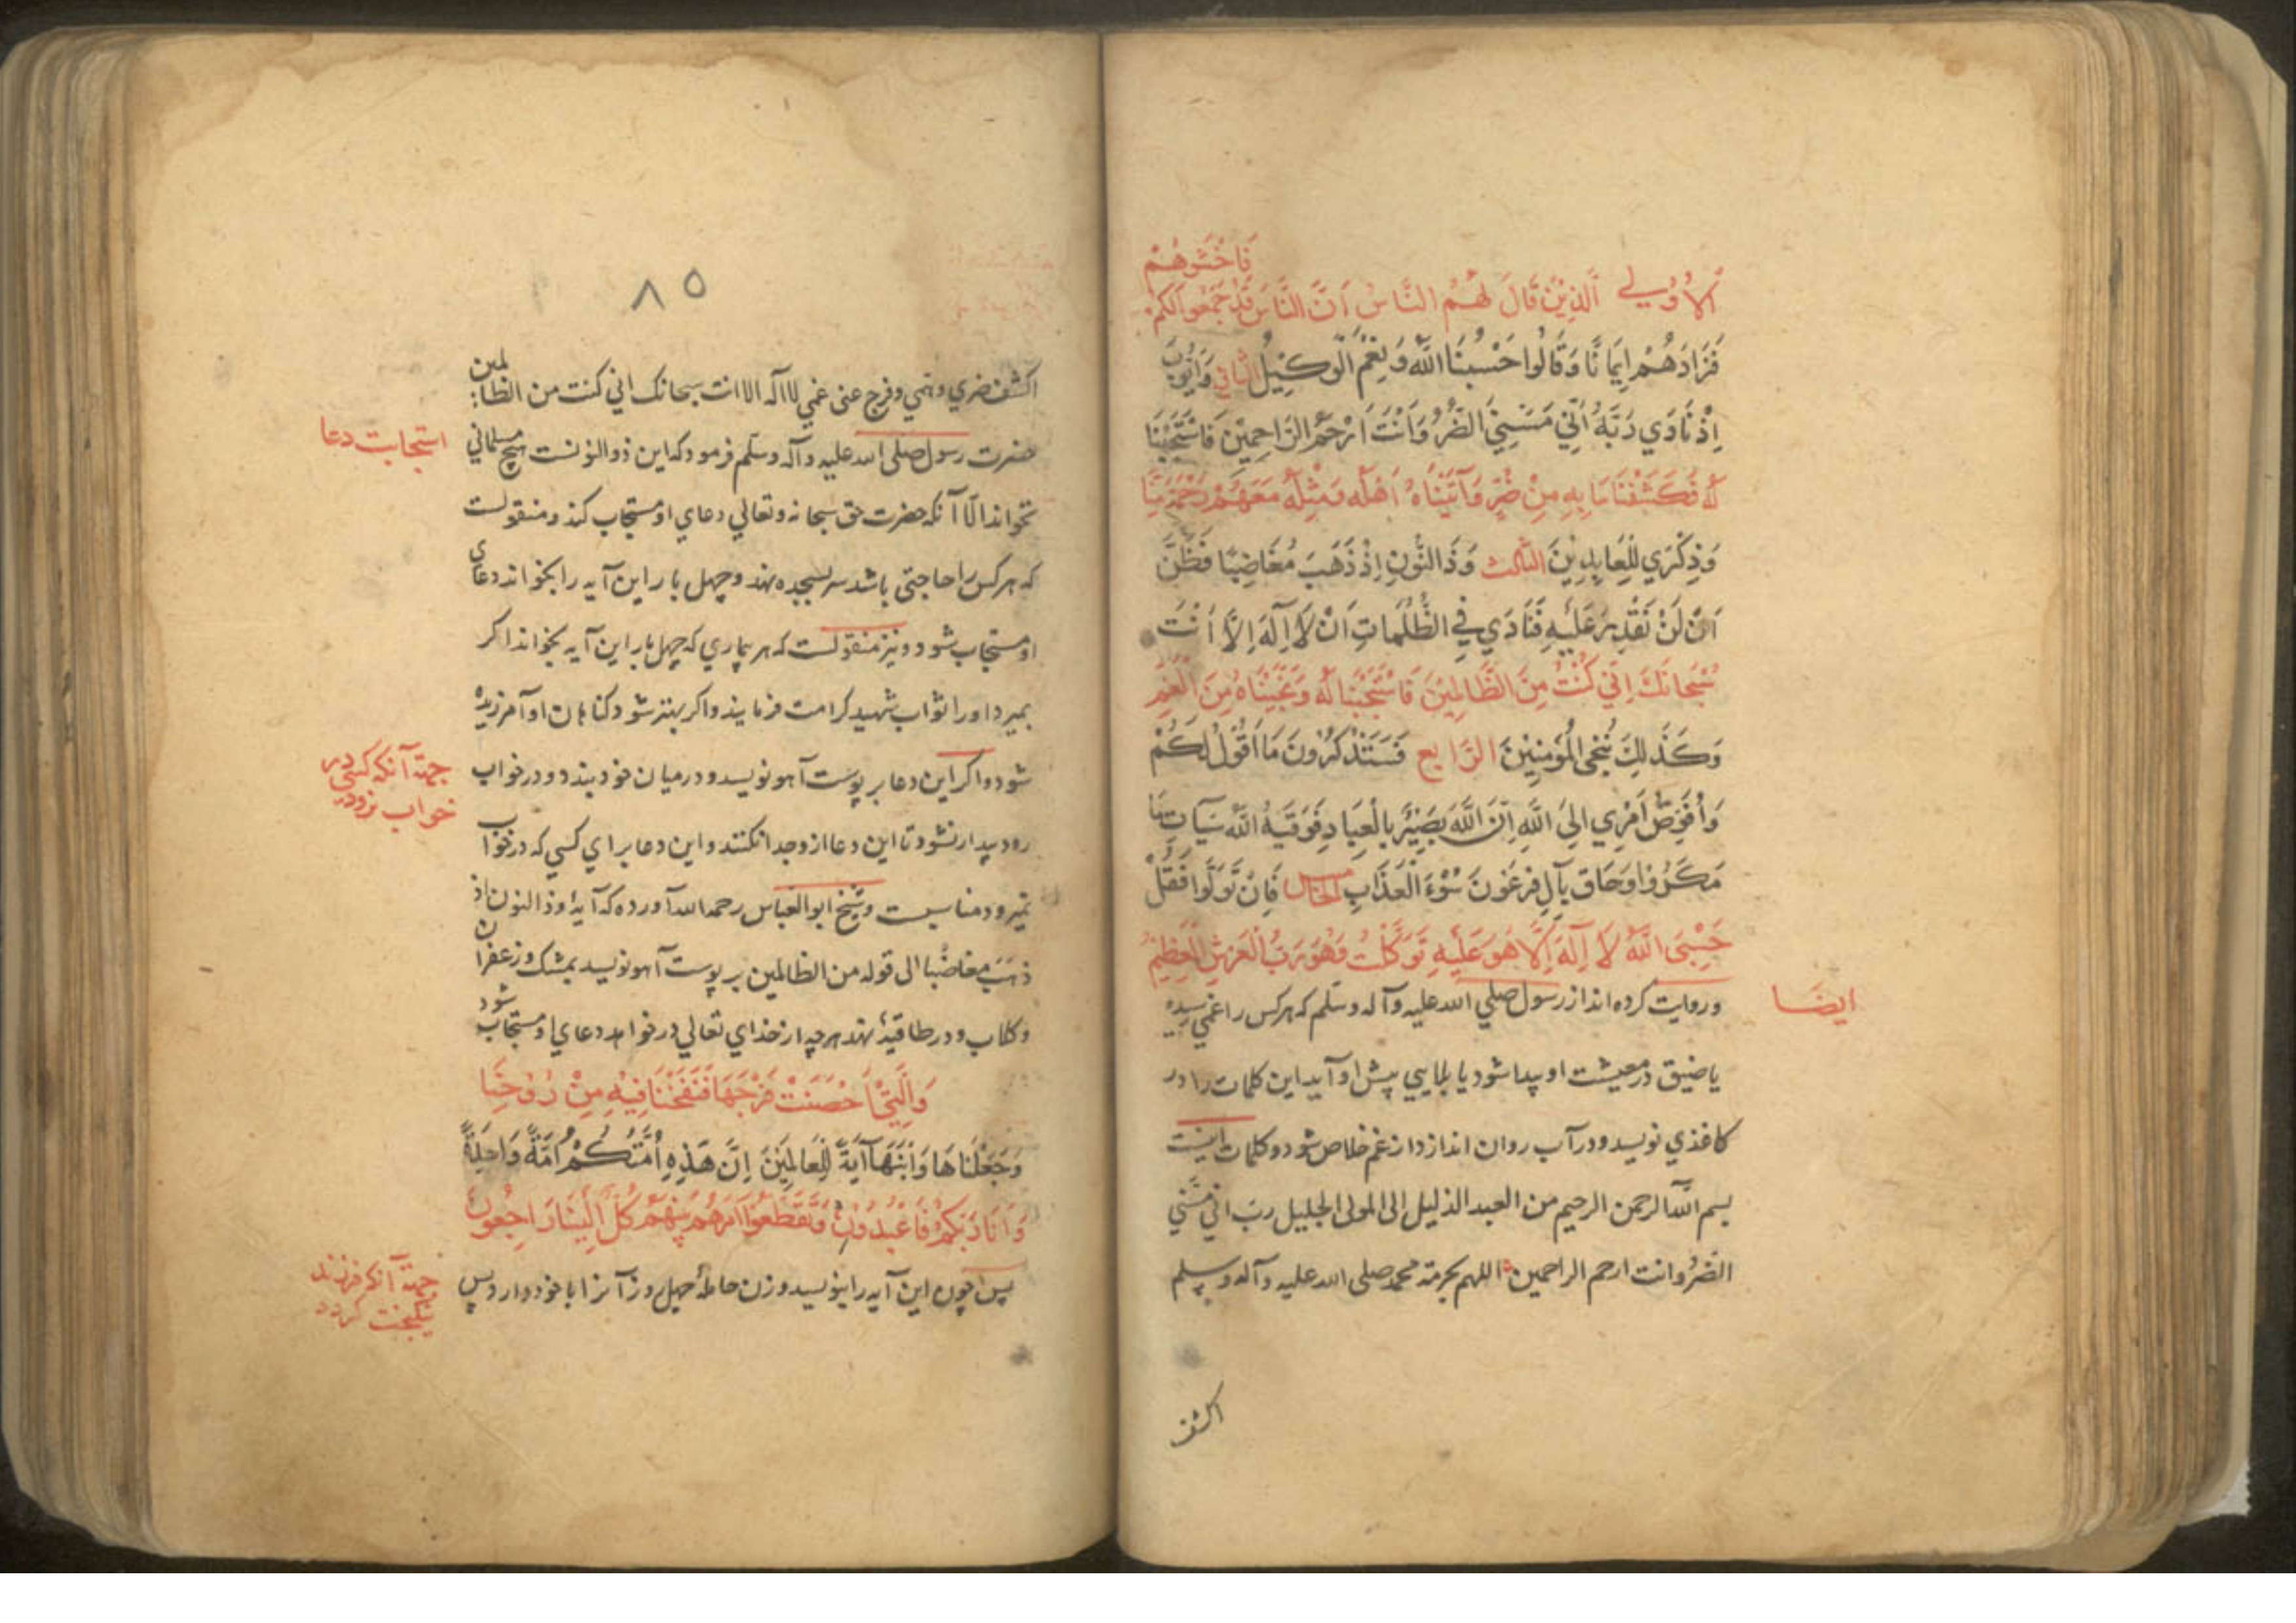 فَاخْشَوْهُمْ
اَلْاُوْلٰی اَلَّذِیْنَ قَالَ لَهُمُ النَّاسُ اَنَّ النَّاسَ قَدْ جَمَعُوالَكُمْ
فَزَادَهُمْ اِیمَانًا وَقَالُوا حَسْبُنَا اللّٰهُ وَنِعْمَ الْوَكِیْلُ الثانی وَاَیُّوبَ
اِذْ نَادَی رَبَّهُ اَنِّی مَسَّنِیَ الضُّرُّ وَاَنْتَ اَرْحَمُ الرَّاحِمِیْنَ فَاسْتَجَبْنَا
لَهُ فَكَشَفْنَا مَا بِهِ مِنْ ضُرٍّ وَآتَیْنَاهُ اَهْلَهُ وَمِثْلَهُ مَعَهُمْ رَحْمَةً مِنَّا
وَذِكْرَی لِلْعَابِدِیْنَ الثَّالث وَذَا النُّوْنِ اِذْ ذَهَبَ مُغَاضِبًا فَظَنَّ
اَنْ لَنْ نَقْدِرَ عَلَیْهِ فَنَادَی فِی الظُّلُمَاتِ اَنْ لَا اِلٰهَ اِلَّا اَنْتَ
سُبْحَانَكَ اِنِّی كُنْتُ مِنَ الظَّالِمِیْنَ فَاسْتَجَبْنَا لَهُ وَنَجَّیْنَاهُ مِنَ الْغَمِّ
وَكَذٰلِكَ نُنْجِی الْمُؤْمِنِیْنَ الرَّابع فَسَتَذْكُرُوْنَ مَا اَقُوْلُ لَكُمْ
وَاُفَوِّضُ اَمْرِی اِلَی اللّٰهِ اِنَّ اللّٰهَ بَصِیْرٌ بِالْعِبَادِ فَوَقَیهُ اللّٰهُ سَیِّآتِ مَا
مَكَرُوْا وَحَاقَ بِآلِ فِرْعَوْنَ سُوْءُ الْعَذَابِ الخامس فَاِنْ تَوَلَّوْا فَقُلْ
حَسْبِیَ اللّٰهُ لَا اِلٰهَ اِلَّا هُوَ عَلَیْهِ تَوَكَّلْتُ وَهُوَ رَبُّ الْعَرْشِ الْعَظِیْمِ
ایضًا
وروایت كرده اند از رسول صلی الله علیه وآله وسلم كه هركس را غمی رسیده
یا ضیق در معیشت او پیدا شود یا بلایی پیش او آید این كلمات را در
كاغذی نویسد و در آب روان اندازد از غم خلاص شود و كلمات اینست
بسم الله الرحمن الرحیم من العبد الذلیل الی المولی الجلیل رب انی مسّنی
الضُرُّ وانت ارحم الراحمین اللهم بحرمة محمد صلی الله علیه وآله وسلم
اكشف
٨٥
اكشف ضری وهمی وفرج عنی غمی لا اله الا انت سبحانك انی كنت من الظالمین
استجابت دعا
حضرت رسول صلی الله علیه وآله وسلم فرمود كه این ذوالنونست هیچ مسلمانی
نخواند الّا آنكه حضرت حق سبحانه وتعالی دعای او مستجاب كند و منقولست
كه هركس را حاجتی باشد سر بسجده نهد و چهل بار این آیه را بخواند دعای
او مستجاب شود و نیز منقولست كه هر بیماری كه چهل بار این آیه بخواند اكر
بمیرد او را ثواب شهید كرامت فرمایند و اكر بهتر شود كناهان او آمرزیده
جهة آنكه كسی در
خواب نرود
شود و اكر این دعا بر پوست آهو نویسد و در میان خود بندد و در خواب
رود بیدار نشود تا این دعا از وجدا نكنند و این دعا برای كسی كه در خواب
نمیرود مناسبست و شیخ ابوالعباس رحمه الله آورده كه آیهٔ وذا النون اذ
ذهَبَ مغاضبًا الی قوله من الظالمین بر پوست آهو نویسد بمشك و زعفران
وكلاب و در طاقیهٔ نهد هرچه از خدای تعالی درخواهد دعای او مستجاب شود
وَالَّتِی اَحْصَنَتْ فَرْجَهَا فَنَفَخْنَا فِیْهِ مِنْ رُوْحِنَا
وَجَعَلْنَاهَا وَابْنَهَا آیَةً لِلْعَالَمِیْنَ اِنَّ هَذِهِ اُمَّتُكُمْ اُمَّةً وَاحِدَةً
وَاَنَا رَبُّكُمْ فَاعْبُدُوْنِ وَتَقَطَّعُوْا اَمْرَهُمْ بَیْنَهُمْ كُلٌّ اِلَیْنَا رَاجِعُوْنَ
جهة آنكه فرزند
نیكبخت كردد
پس چون این آیه را بنویسد و زن حاملهٔ چهل روز آنرا با خود دارد پس